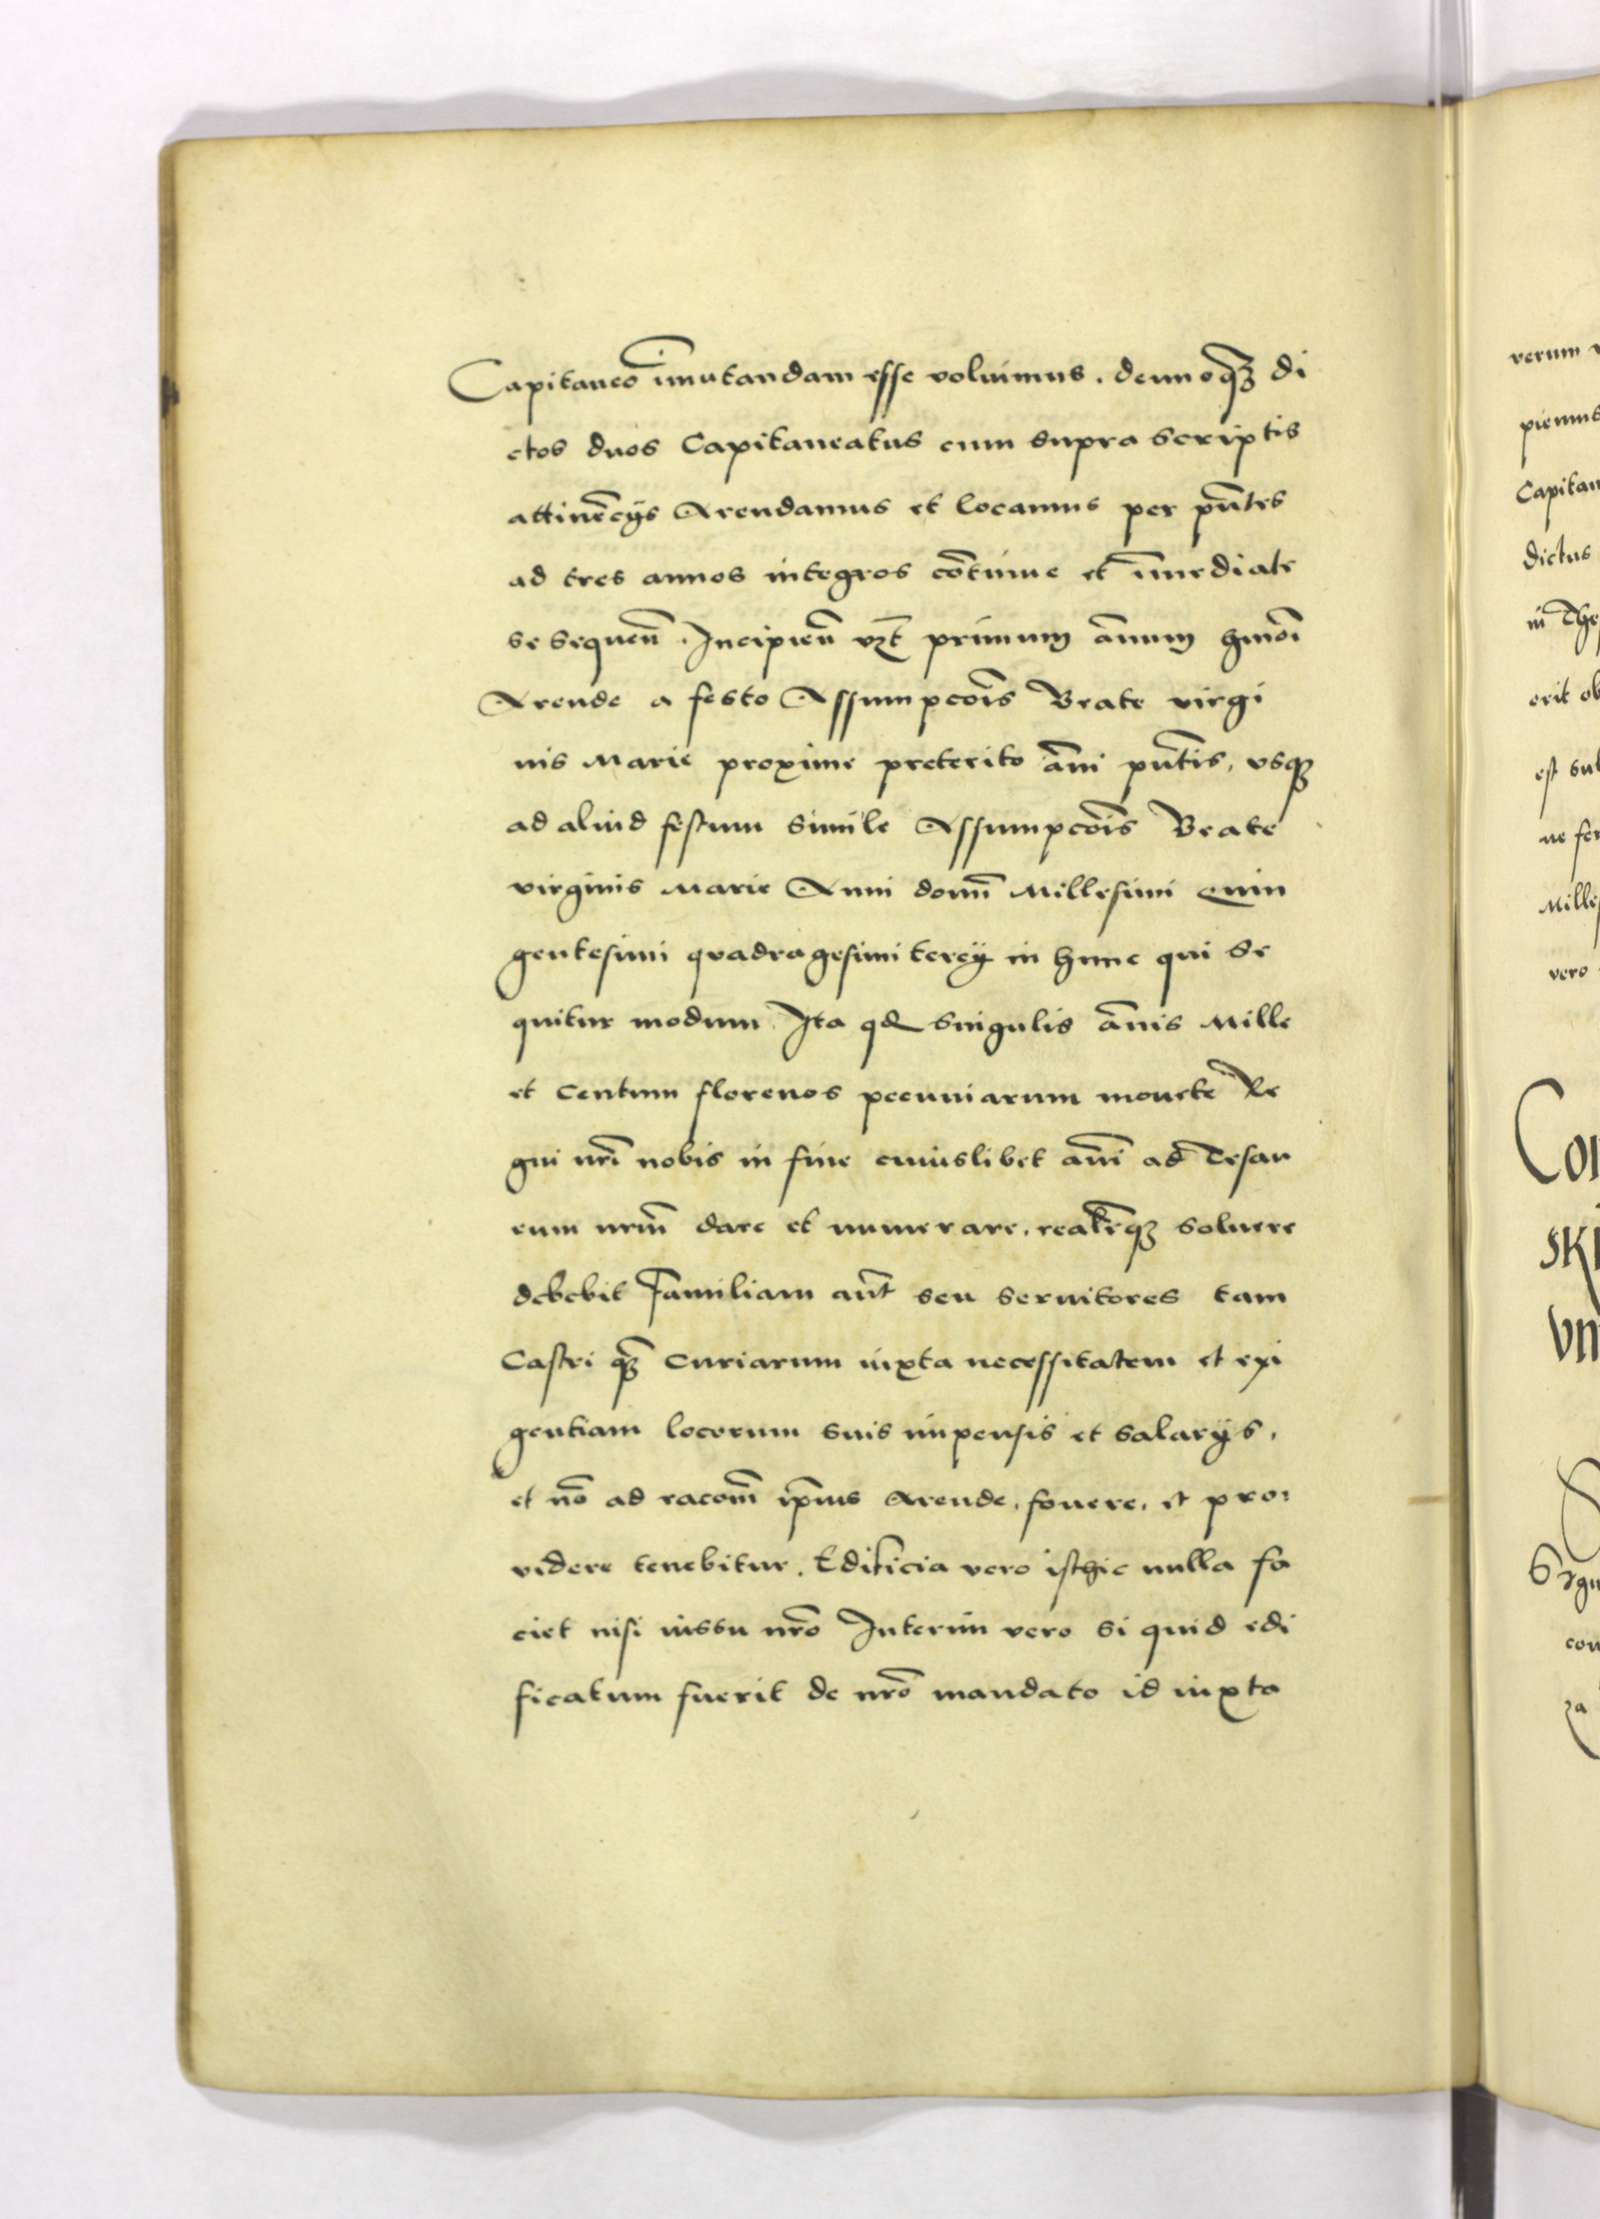 Capitaneo īmutandam esse voluimus. denuoq3 di
ctos duos Capitaneatus cum supra scriptis
attinēcys Arendamus et locamus per pn̄tes
ad tres annos integros cōtinue et īmediate
se sequen̄. Incipien̄ vz̄t primum ānum hmōi
Arende a festo Assumpcōis Beate virgi
nis Marie proxime preterito āni pn̄tis, vsq3
ad aliud festum simile Assumpcōis Beate
virginis Marie Anni domī Millesimi Quin
gentesimi quadragesimi tercy in hunc qui se
quitur modum Ita qd singulis ānis Mille
et Centum florenos pecuniarum monete Re
gni nr̄i nobis in fine cuiuslibet an̄i ad Tesau
eum nrm̄ dare et numerare. realr̄q3 soluere
debebit Familiam aūt seu seruitores tam
Castri q3̄ Curiarum iuxta necessitatem et exi
gentiam locorum suis impensis et salarys,
et nō ad racōm ip̄ius Arende, fouere, et pro:
videre tenebitur. Edificia vero isthic nulla fa
ciet nisi iussu nr̄o Interim vero si quid edi
ficatum fuerit de nr̄o mandato id iuxta
verum
piemus
Capitan
dictus
in The
erit ob
est sub
ne fer
Milles
vero
Con
SKI
VN
con
za